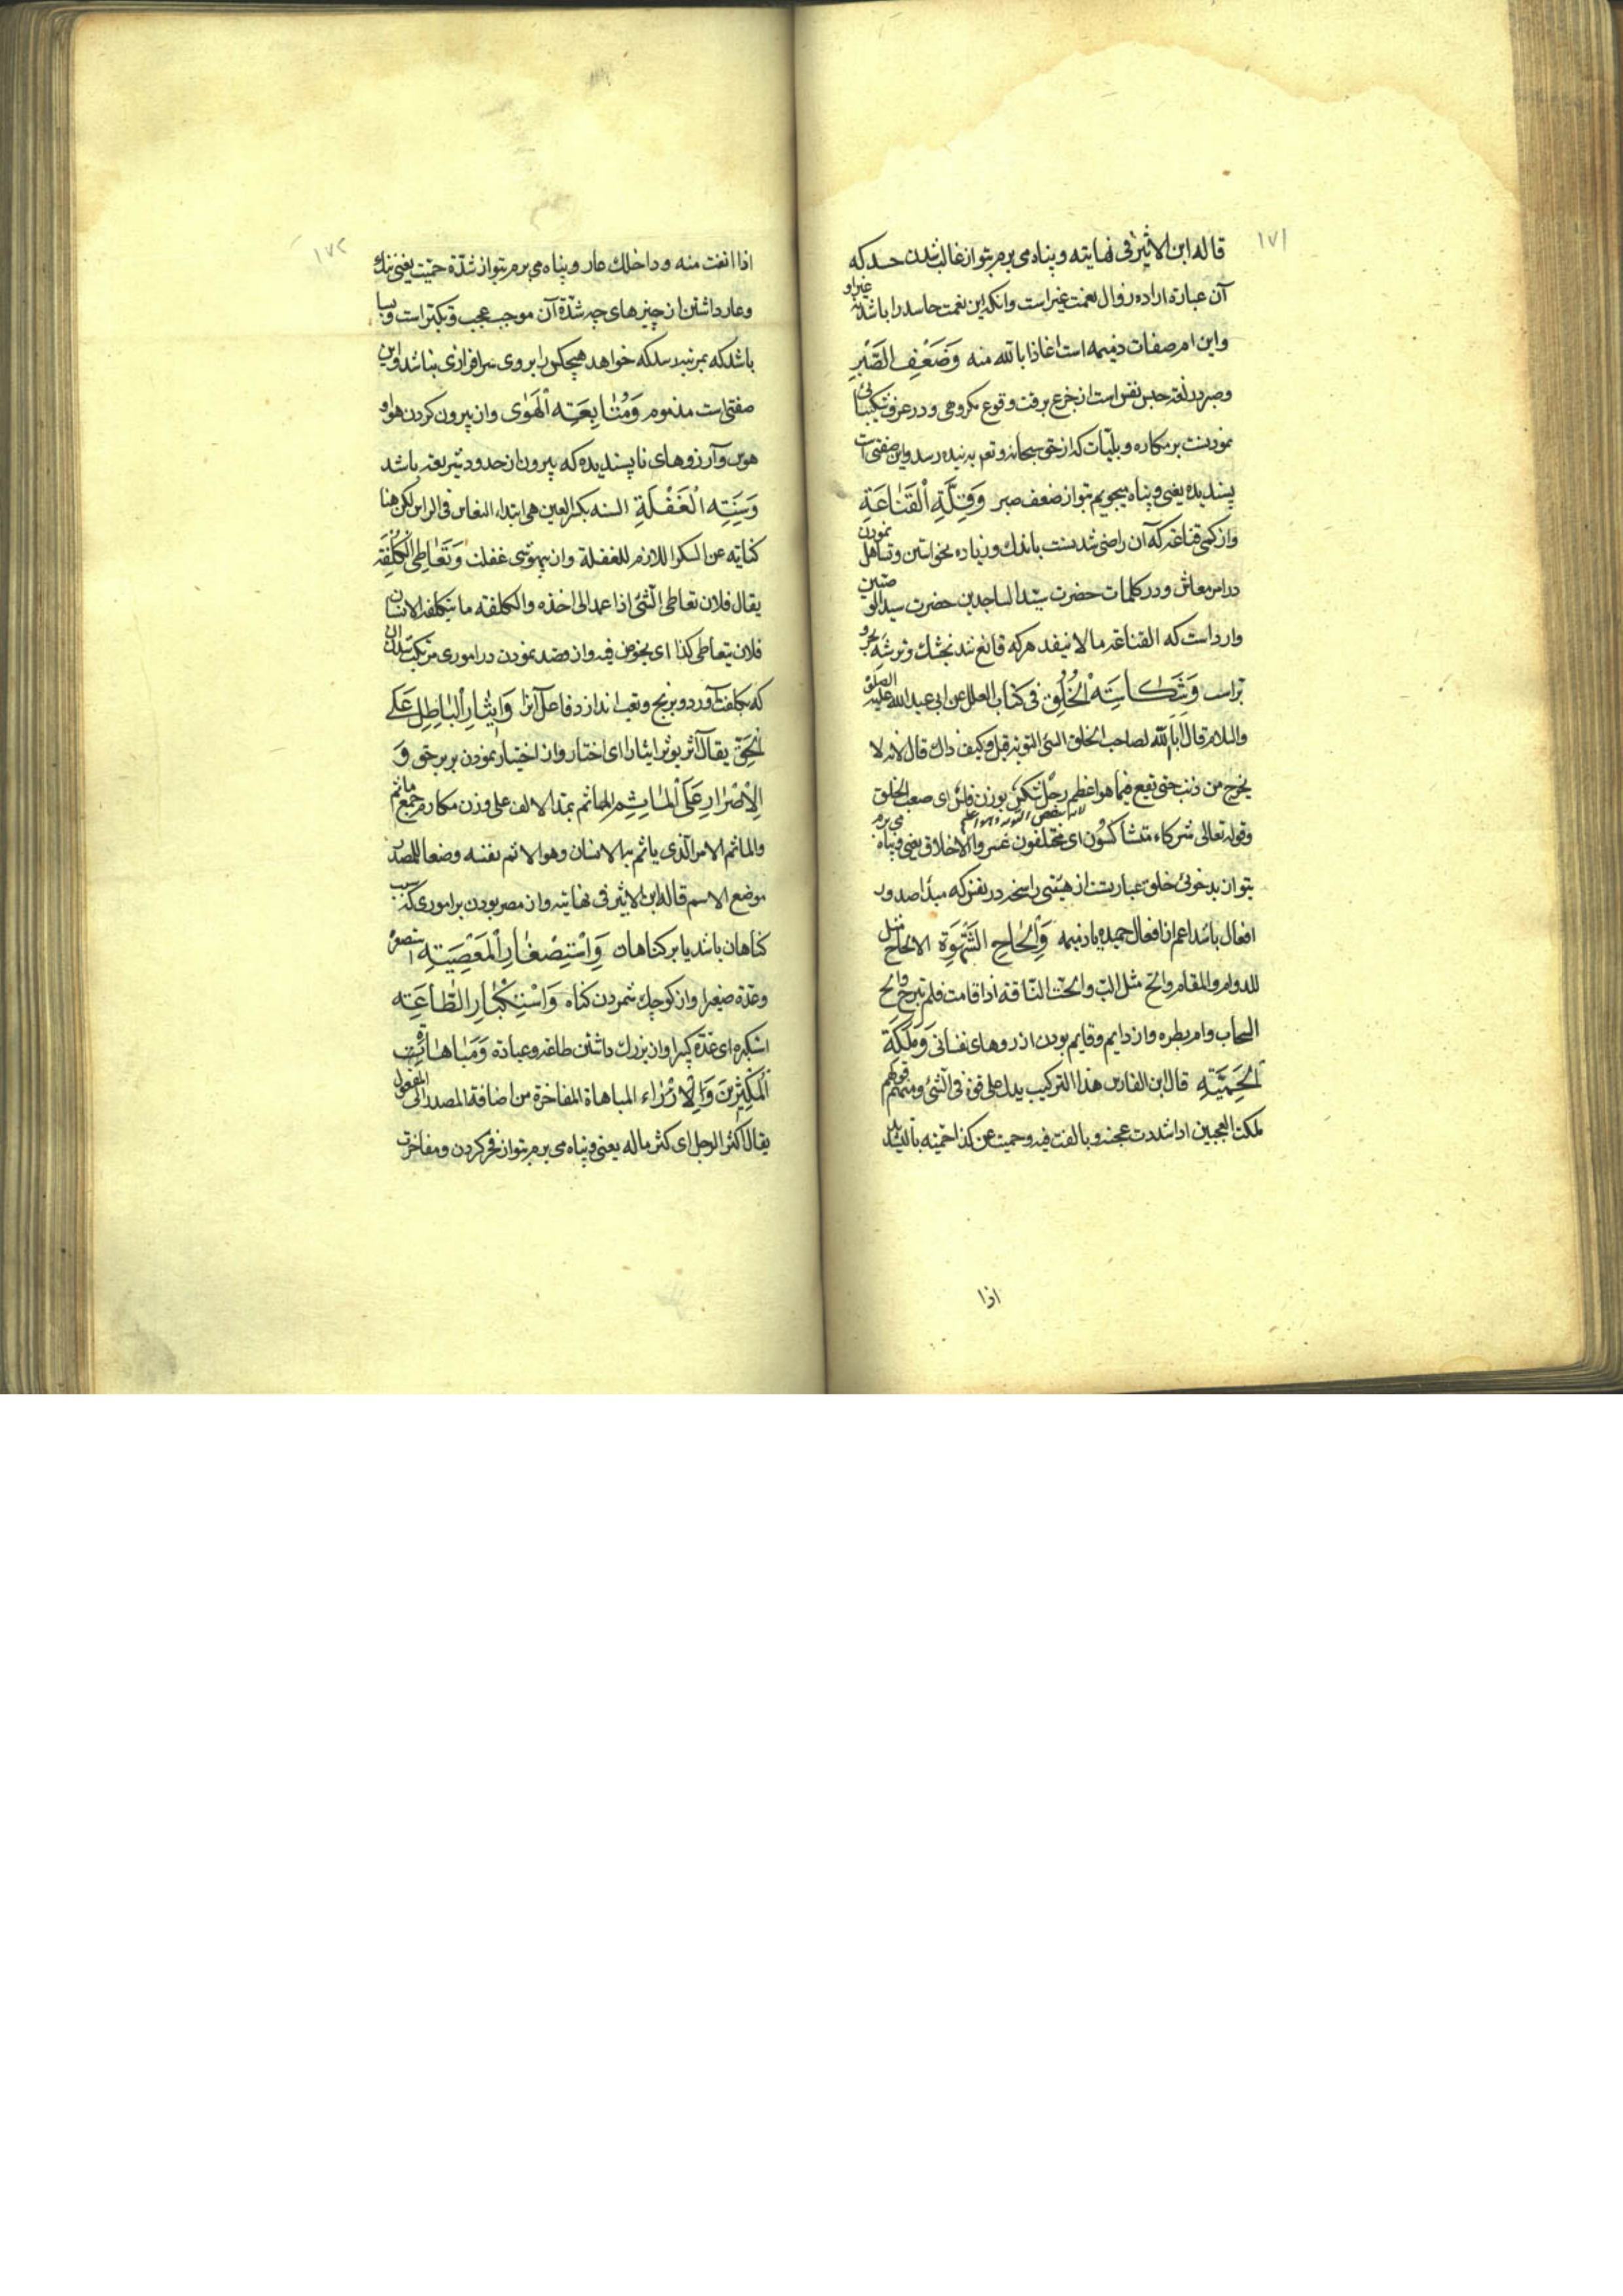 ١٧١
قاله ابن الاثير فی نهايته و پناه می برم بتو از غالب شدن حسد كه
آن عبارة اراده زوال نعمت غير است وانكه اين نعمت حاسد را باشد نه غير او
واين ام صفات ذميمه است اعاذنا بالله منه وَضَعْفِ الصَّبْرِ
وصبر در لغة حبس نفس است از جزع بر وقت وقوع مكروهی و در عرف شكيبائی
نمودنست بر مكاره و بليّات كه از حق سبحانه وتعم به بنده رسد واين صفتی است
پسنديده يعنی و پناه ميجويم بتو از ضعف صبر وَقِلَّةِ الْقَنَاعَةِ
واز كمی قناعة كه آن راضی شدنست باندك و زياده نخواستن وتساهل نمودن
در امر معاش و در كلمات حضرت سيّد الساجدين حضرت سيد الوصيين
وارد است كه القناعة مال لا ينفد هر كه قانع شد بخشك وتر شه بحر و
بر است وَشَكَاسَتِهِ الْخُلُقِ فی كتاب العلل عن ابی عبد الله عليه الصلوة
والسلام قال ابَی الله لصاحب الخلق السئ التوبة قيل وكيف ذاك قال لانه لا
يخرج من ذنب حتی تقع فيما هو اعظم رجل شكس بوزن فلس ای صعب الخلق
وقوله تعالی شركاء متشاكسون ای مختلفون عسر والاخلاق يعنی و پناه می برم
بتو از بدخوئی خلق عبارتست از هيئتی راسخه در نفس كه مبدأ صدور
افعال باشد اعم از افعال حميده يا ذميمه وَإِلْحَاحِ الشَّهْوَةِ الالحاح مثل
للدوام والمقام والح مثل الب والحت الناقة اذا قامت فلم تبرح والح
السحاب دام بطره واز دايم وقايم بودن ارزوهای نفسانی وَمَلَكَةِ
الْحَمِيَّةِ قال ابن الفارس هذا التركيب يدل علی قوة فی الشئ ومنه قولهم
ملكت العجين اذا شددت عجنه وبالغت فيه وحميت عن كذا حميّة بالتشديد
اذا
١٧٢
اذا انفت منه وداخلك عار و پناه می برم بتو از شدّة حميّت يعنی ننك
وعار داشتن از چيزهای چه شدّة آن موجب عجب و تكبّر است وبسا
باشد كه بمرتبه رسد كه خواهد هيچكس را بر وی سرافرازی نباشد واين
صفتی است مذموم وَمُتَابَعَتِهِ الْهَوٰی واز پيروی كردن هوا و
هوس و آرزوهای ناپسنديده كه بيرون از حدود شريعة باشد
وَسِنَتِهِ الْغَفْلَةِ السنه بكسر العين هی ابتداء النعاس فی الراس لكن هنا
كناية عن السكر اللازم للغفلة واز بيهوشی غفلت وَتَعَاطِی الْكُلْفَةِ
يقال فلان تعاطی الشئ اذا عمد الی اخذه والكلفة ما يتكلفه الانسان
فلان يتعاطی كذا ای يخوض فيه واز قصد نمودن در اموری مرتكب شدن آن
كه بكلفت آورد و برنج وتعب اندازد فاعل آنرا وَايثَارِ الْبَاطِلِ عَلَی
الْحَقِّ يقال آثر يوثر ايثارا ای اختار واز اختيار نمودن بر بر حق وَ
الْاِصْرَارِ عَلَی الْمَآثِمِ المآثم بمد الالف علی وزن مكارم جمع ماثم
والماثم الامر الذی ياثم به الانسان وهو الاثم بفسه وضعا للمصدر
موضع الاسم قاله ابن الاثير فی نهايته واز مصر بودن بر اموری كه سبب
كناهان باشد يا بر كناهان وَاسْتِصْغَارِ الْمَعْصِيَتِهِ استصغره
وعدّه صغيرا واز كوچك شمردن كناه وَاسْتِكْبَارِ الطَّاعَتِهِ
استكبره ای عدّه كبيرا واز بزرك داشتن طاعة وعبادة وَمُبَاهَاةِ
الْمُكْثِرِينَ وَالْاِزْرَاء المباهاة المفاخرة من اضافة المصدر الی المفعول
يقال اكثر الرجل ای كثر ماله يعنی و پناه می برم بتو از فخر كردن ومفاخرت